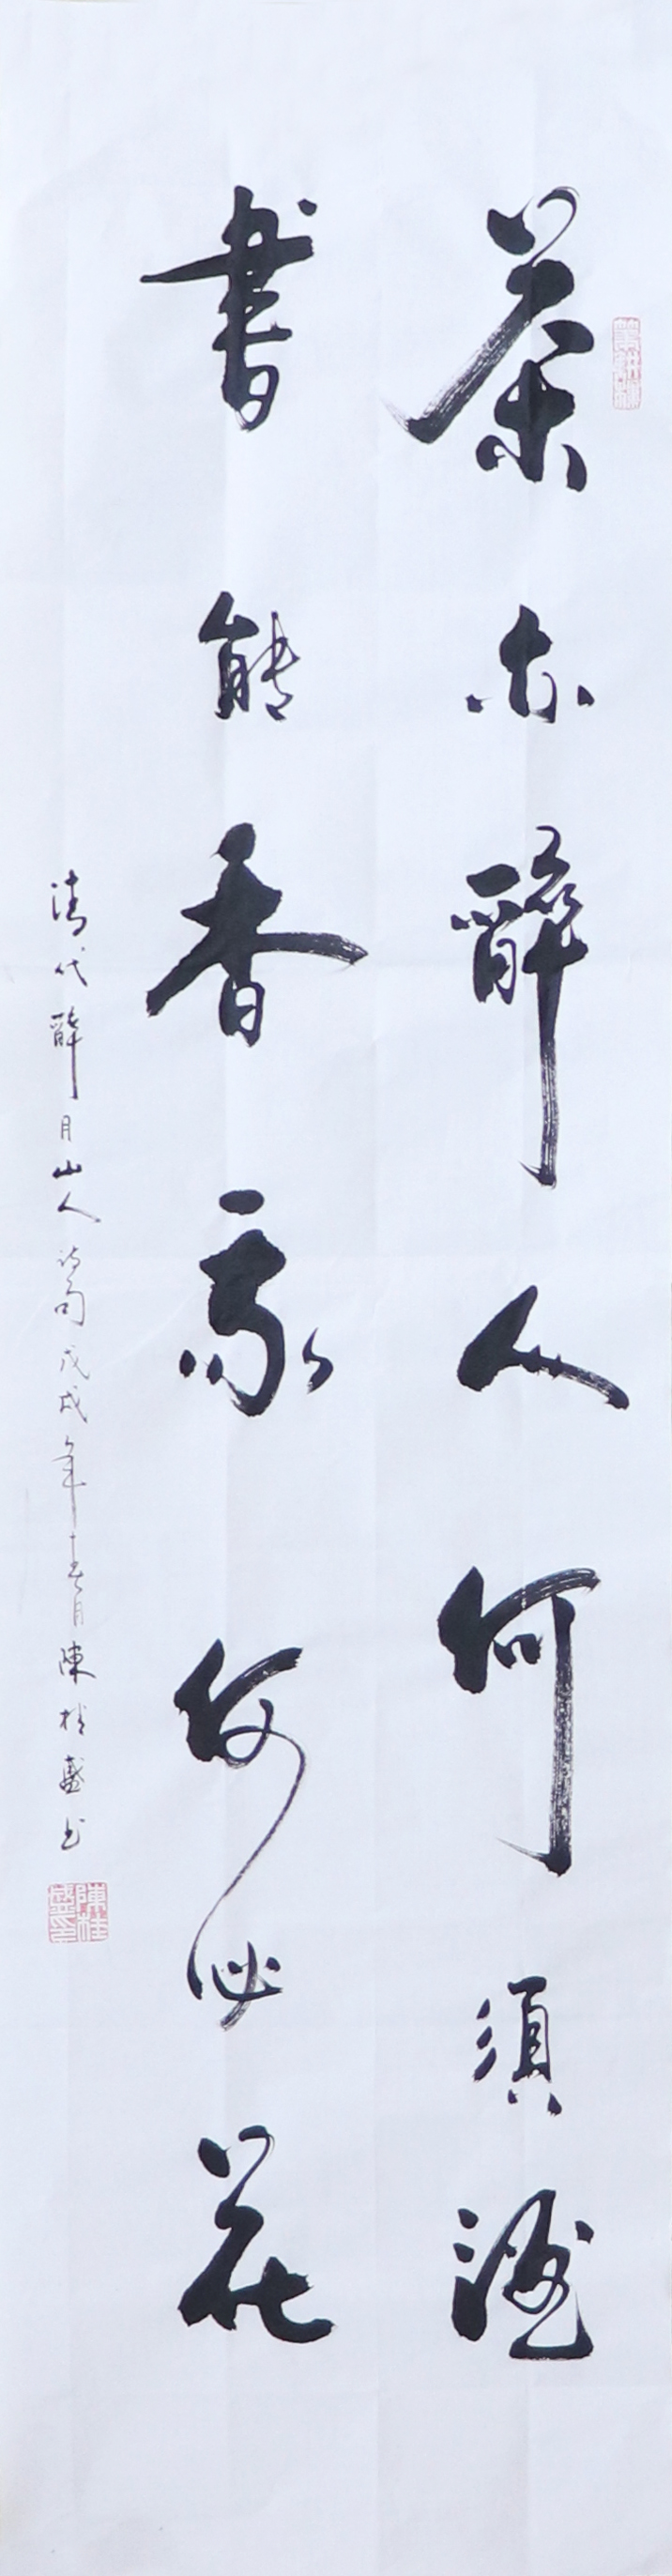 茶亦醉人何須酒
書能香我何必花
清代醉月山人詩句戊戌年春月陳桂盛书
陳桂盛印